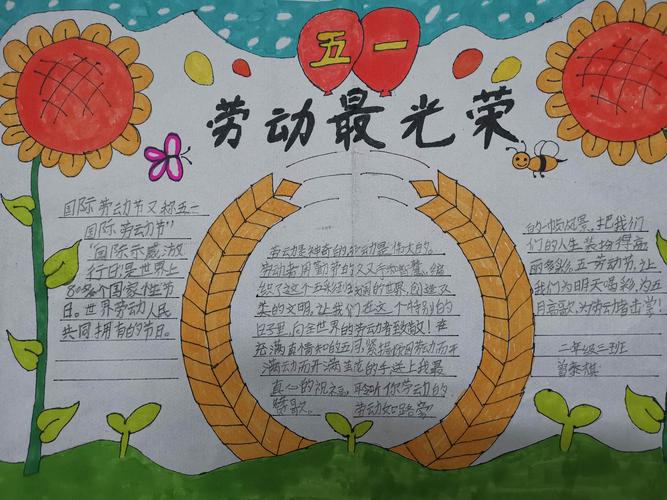 五一
劳动最光荣
国际劳动节又称五一
国际劳动节"
"国际示威游
行日是世界上
80多个国家性节
日。世界劳动人民
共同拥有的节日。
劳动是神奇的,劳动是伟大的。
劳动者用勤劳的双手和智慧,编
织了这个五彩的世界,创造了人
类的文明,让我们在这个特别的
日子里,向全世界的劳动者致敬!在
充满真情的五月,紧握
满的手送上我最
真心的祝福,聆听你劳动的
赞歌。 劳动如路旁
的一幅风景,把我们
们的人生装扮得美
丽多彩,五一劳动节,让
我们为明天喝彩,为五
月高歌,为劳动者击掌!
二年级三班